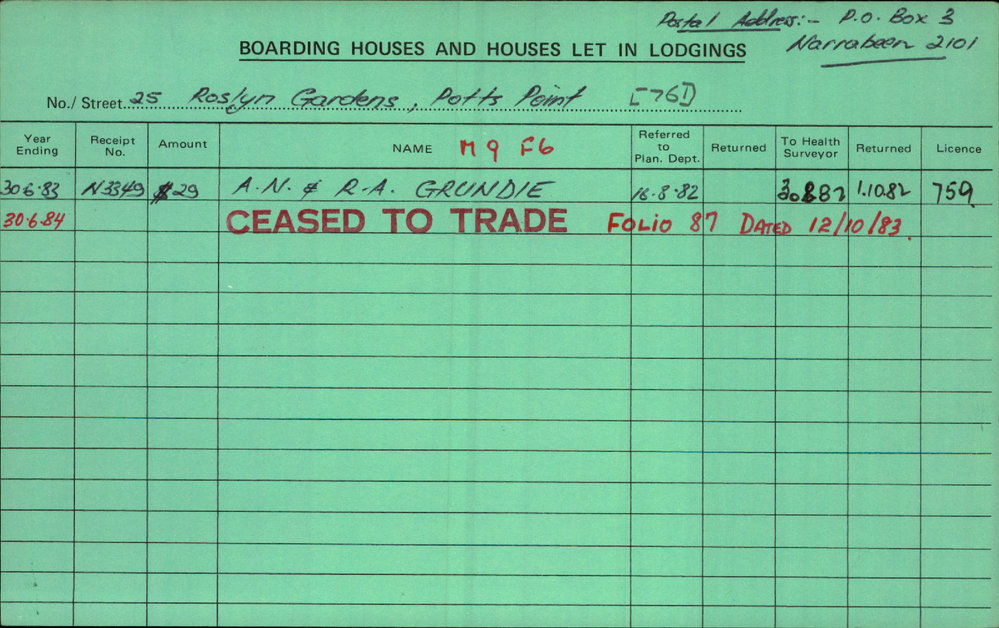 Postal Address:- P.O. Box 3
Narrabeen 2101
BOARDING HOUSES AND HOUSES LET IN LODGINGS
No./Street 25 Roslyn Gardens, Potts Point [76D]
Year Ending Receipt No. Amount NAME M9 F6 Referred to Plan. Dept. Returned To Health Surveyor Returned Licence
30.6.83 N3349 $29 A.N. & R.A. GRUNDIE 16.8.82 30.8.82 1.10.82 759
30.6.84 CEASED TO TRADE FOLIO 87 DATED 12/10/83.